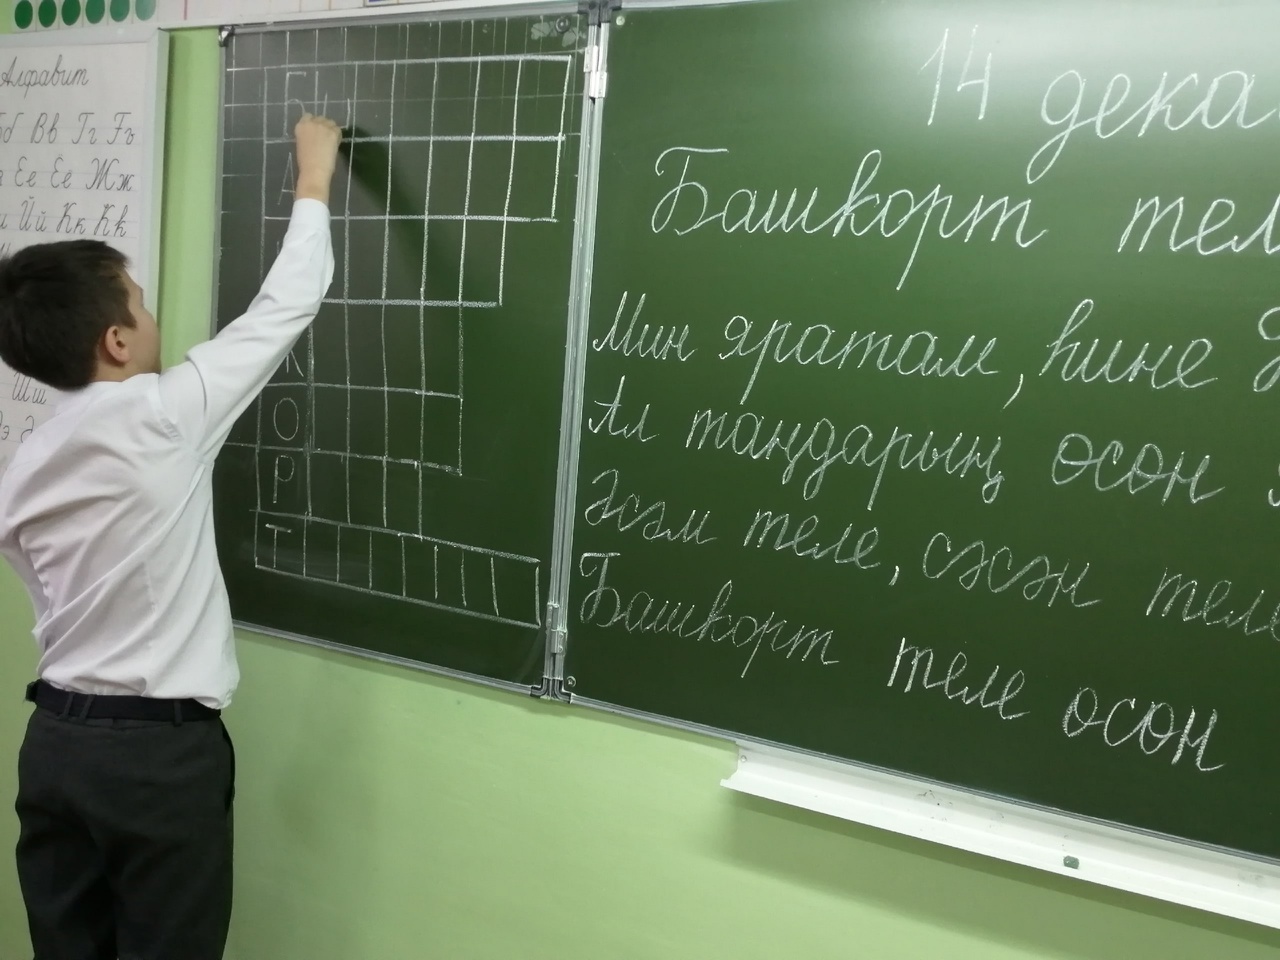 Алфавит
Бб Вв Гг Ғғ
Ее Ёё Жж
Йй Кк Ҡҡ
Шш
Б
А
К
О
Р
Т
14 дека
Башҡорт тел
Мин яратам, һине
Ал таңдарың өсөн
Әсәм теле, сәсән теле
Башҡорт теле өсөн